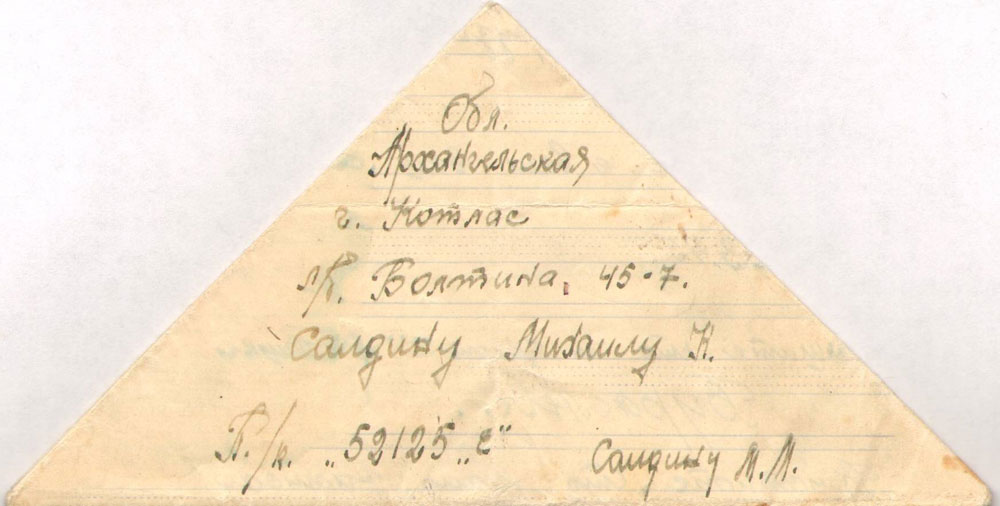 Обл.
Архангельская
г. Котлас
Болтина, 45-7.
Салдину Михаилу К.
П./я. „52125 „е“
Салдину М.М.